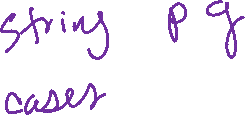 string p q
cases